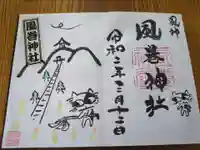 風神
風巻神社
令和二年三月十三日
風巻神社